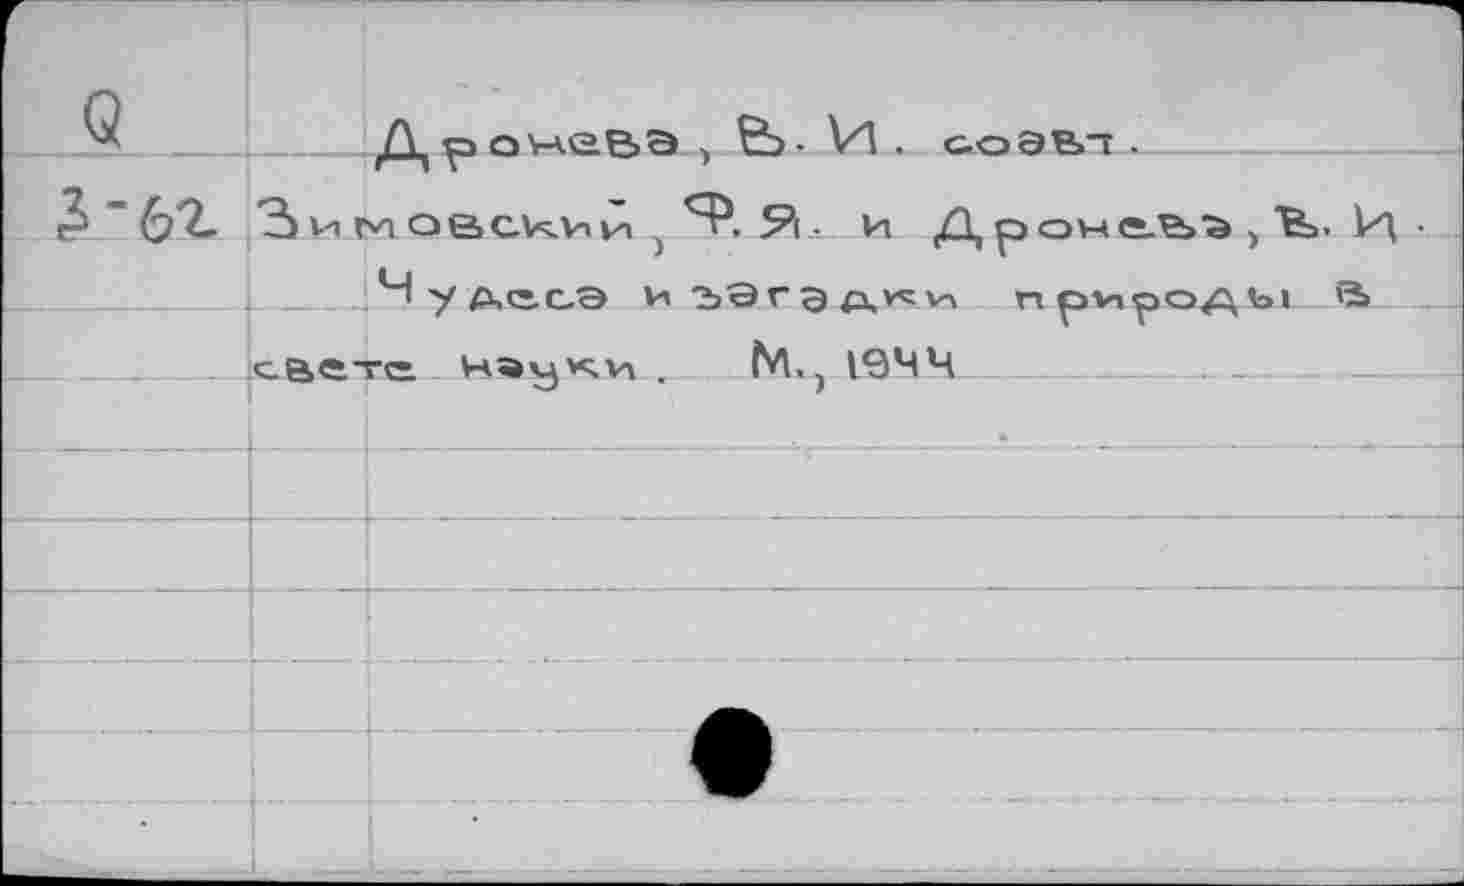 Q Дронева, В. И. соавт.
З-62 Зимовский, Ф. Я. и Дронева, В. И.
Чудеса и загадки природы в
свете науки. М., 1944